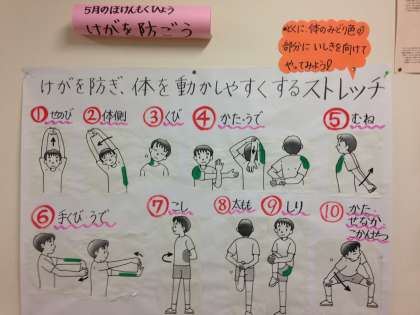 5月のほけんもくひょう
けがを防ごう
とくに体のみどり色の
部分にいしきを向けて
やってみよう!
けがを防ぎ、体を動かしやすくするストレッチ
①せのび
②体側
③くび
④かた・うで
⑤むね
⑥手くび・うで
⑦こし
⑧太もも
⑨しり
⑩かた
せなか
こかんせつ